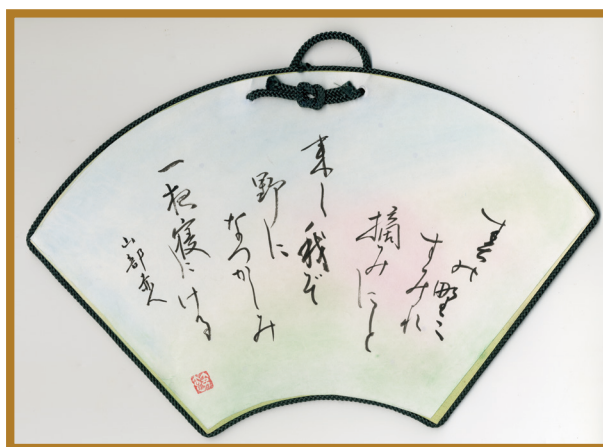 春の野に
すみれ
摘みにと
来し我ぞ
野に
なつかしみ
一夜寝にける
山部赤人